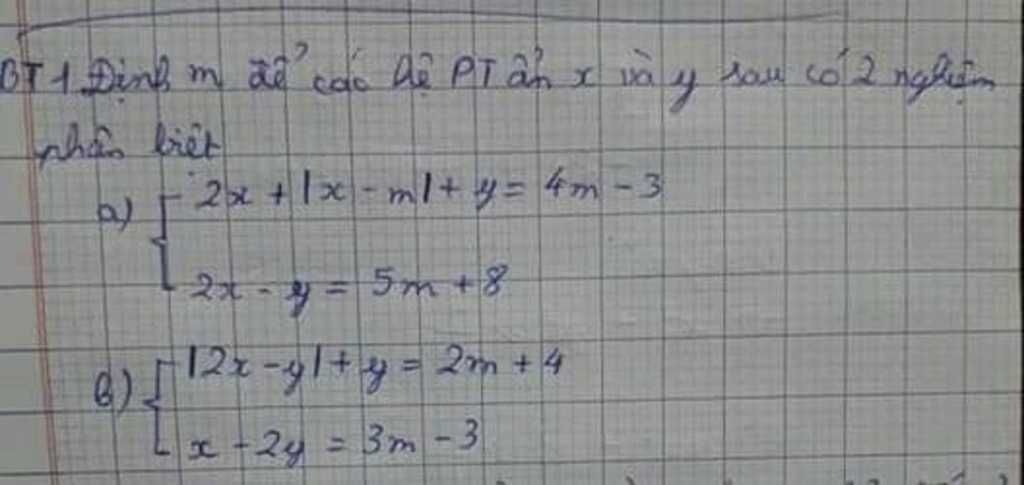 BT1. Định m để các hệ PT ẩn x và y sau có 2 nghiệm
phân biệt
a) { 2x + |x - m| + y = 4m - 3
2x - y = 5m + 8
b) { |2x - y| + y = 2m + 4
x - 2y = 3m - 3